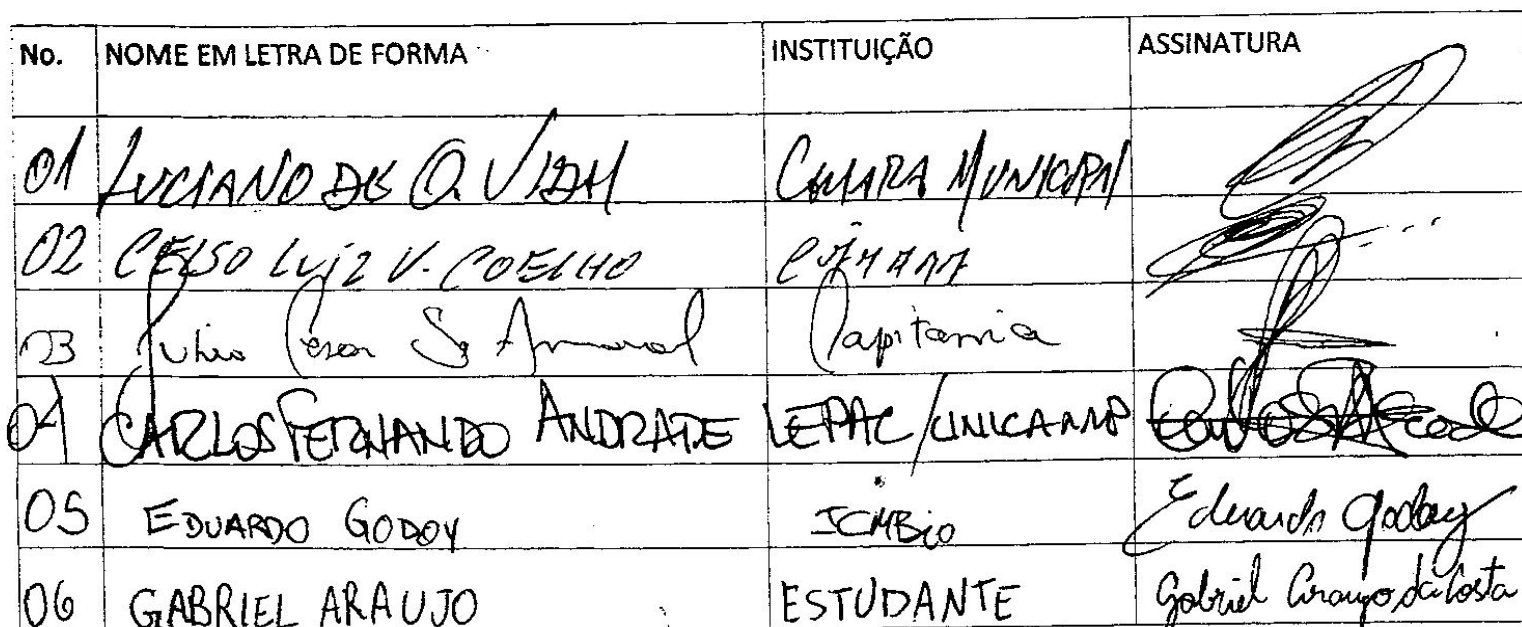 No. NOME EM LETRA DE FORMA INSTITUIÇÃO ASSINATURA
01 LUCIANO DE O. VIDAL CAMARA MUNICIPAL
02 CELSO LUIZ V. COELHO
03 Julio Cesar S. Amaral Capitania
04 CARLOS FERNANDO ANDRADE LEPAC/UNICAMP
05 EDUARDO GODOY ICMBio Eduardo Godoy
06 GABRIEL ARAUJO ESTUDANTE Gabriel Araujo da Costa